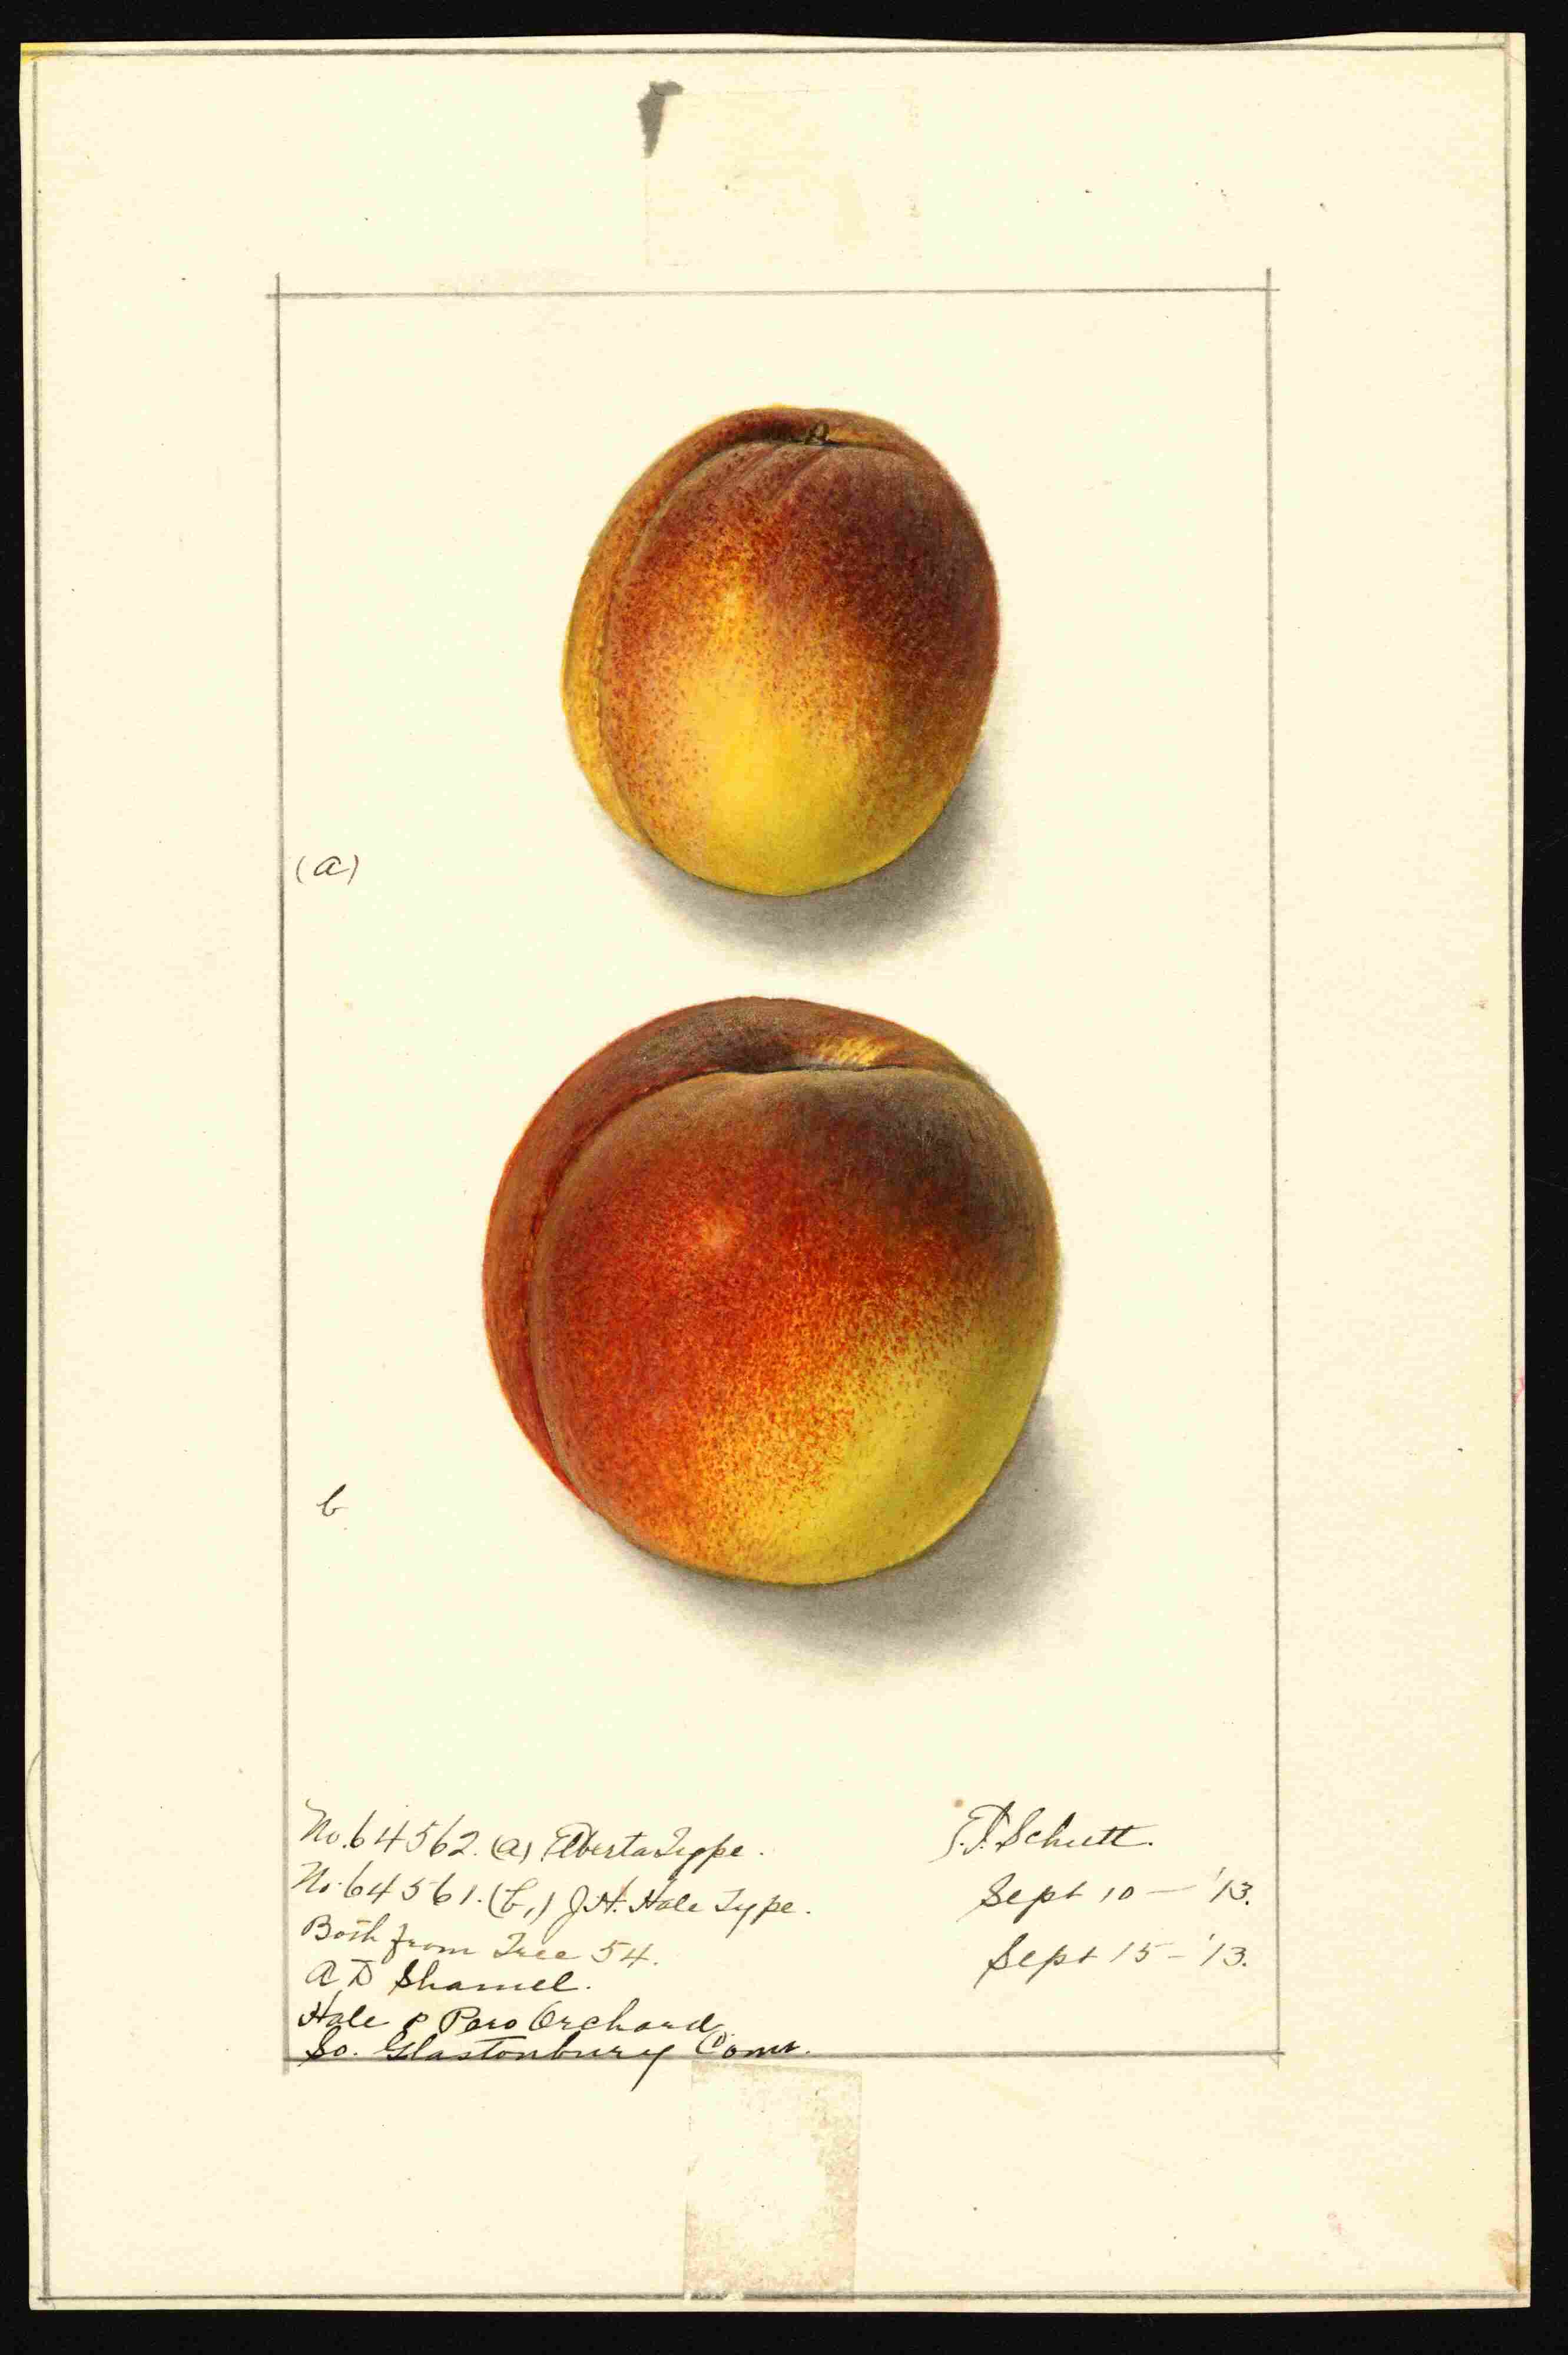 (a)
b
No. 64562. (a) Elberta Type.
No. 64561. (b,) J.H. Hale Type.
Both from Tree 54.
A D Shamel.
Hale & Pero Orchard
So. Glastonbury Conn.
E.I. Schutt.
Sept 10 — '13.
Sept 15 - '13.